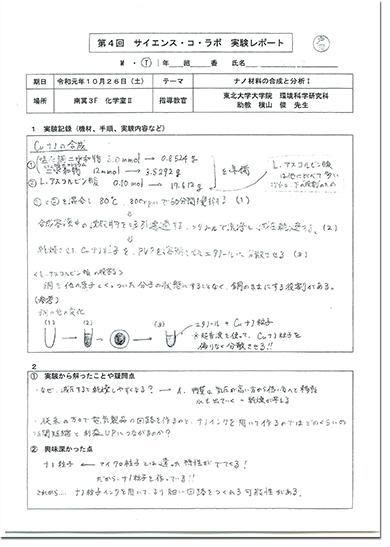 第4回 サイエンス・コ・ラボ 実験レポート
M・T 1年 組 番 氏名
期日 令和元年10月26日（土） テーマ ナノ材料の合成と分析Ⅰ
場所 南翼3F 化学室Ⅱ 指導教官 東北大学大学院 環境科学研究科
助教 横山 俊 先生
1 実験記録（機材、手順、実験内容など）
Cuナノの合成
mmol → 0.8524g
12mmol → 3.5292g を準備
② L.アスコルビン酸 → 17.612g
L.アスコルビン酸
①と②を混合し80℃、800rpmで60分間 (1)
合成 の 吸引 エタノールで洗浄し (2)
Cuナノ粒子を、PVPを溶解したエタノールに分散させる (3)
＜L.アスコルビン酸の役割＞
銅と他の原子とくっついた分子の状態にすることなく、銅のままにする役割がある。
(参考)
の色の変化
(1) (2) (3) エタノール + Cuナノ粒子
※超音波を使って、Cuナノ粒子を
偏りなく分散させる!!
2
① 実験から解ったことや疑問点
・なぜ、減圧すると乾燥しやすくなる？ → A. 物質は気圧が高い方から低い方へと移動
水も出ていく = 乾燥が早る
・従来の方法で電気製品の回路を作るのと、ナノインクを用いて作るのではどのくらいの
時間短縮と利益UPにつながるのか？
② 興味深かった点
ナノ粒子 ← マイクロ粒子とは違った特性がでてくる！
だからナノ粒子を作っている!!
これから… ナノ粒子インクを用いて、より細い回路をつくれる可能性がある。